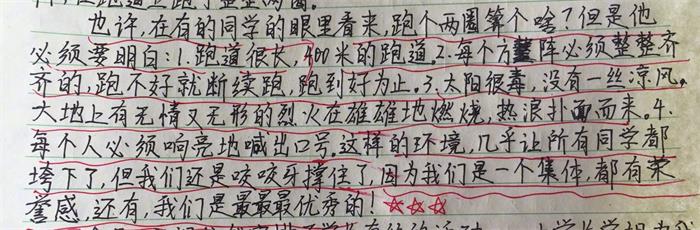 也许,在有的同学的眼里看来,跑个两圈算个啥?但是他
必须要明白:1.跑道很长,400米的跑道。2.每个方阵必须整整齐
齐的,跑不好就断续跑,跑到好为止。3.太阳很毒,没有一丝凉风。
大地上有无情又无形的烈火在雄雄地燃烧,热浪扑面而来。4.
每个人必须响亮地喊出口号。这样的环境,几乎让所有同学都
垮下了,但我们还是咬咬牙撑住了,因为我们是一个集体,都有荣
誉感,还有,我们是最最最优秀的!☆☆☆